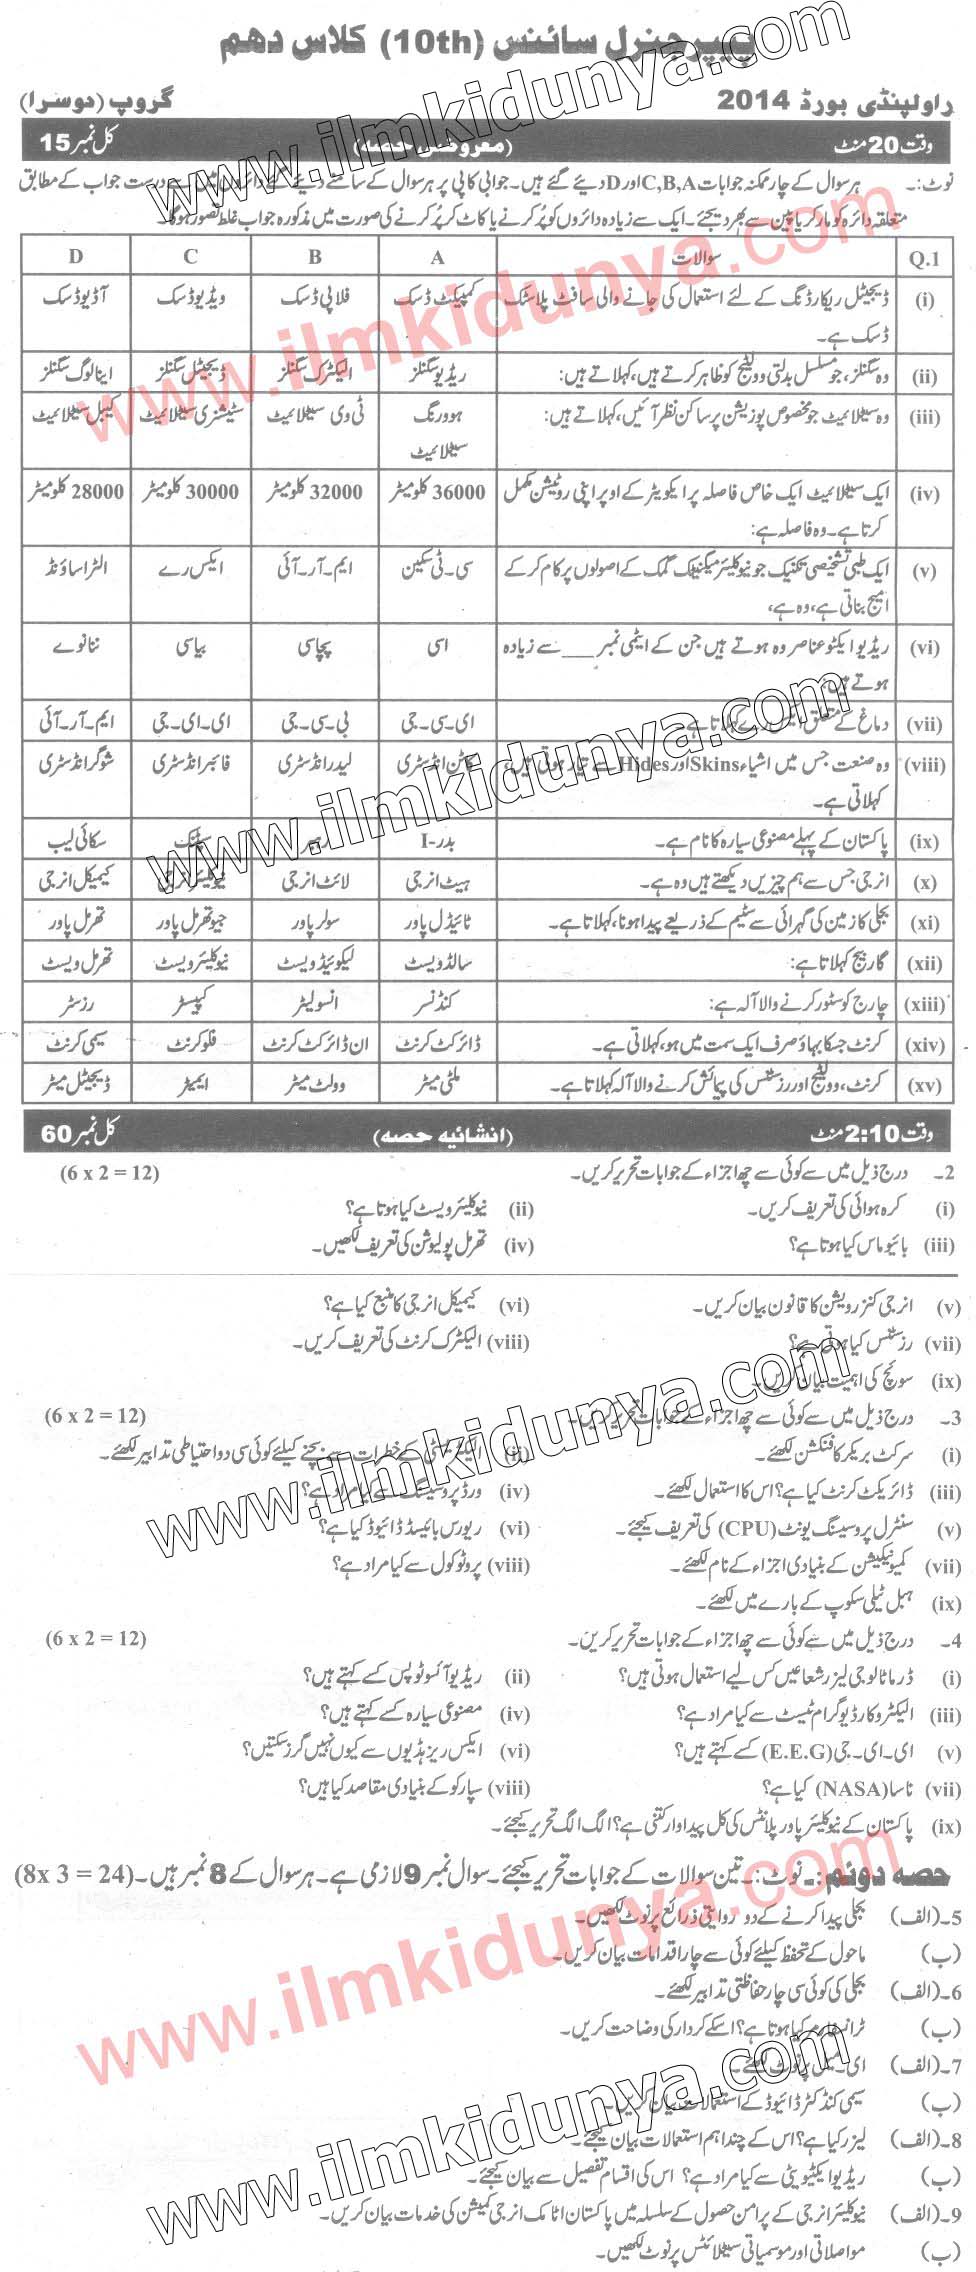 پیپر جنرل سائنس (10th) کلاس دهم
راولپنڈی بورڈ 2014 گروپ (دوسرا)
وقت 20 منٹ (معروضی حصہ) کل نمبر 15
نوٹ:۔ ہر سوال کے چار ممکنہ جوابات A,B,C اور D دیئے گئے ہیں۔ جوابی کاپی پر ہر سوال کے سامنے دیئے گئے دائروں میں سے درست جواب کے مطابق
متعلقہ دائرہ کو مارکر یا پین سے بھر دیجئے۔ ایک سے زیادہ دائروں کو پُر کرنے یا کاٹ کر پُر کرنے کی صورت میں مذکورہ جواب غلط تصور ہوگا۔
Q.1 سوالات A B C D
(i) ڈیجیٹل ریکارڈنگ کے لئے استعمال کی جانے والی سافٹ پلاسٹک کمپیکٹ ڈسک فلاپی ڈسک ویڈیو ڈسک آڈیو ڈسک
ڈسک ہے۔
(ii) وہ سگنلز، جو مسلسل بدلتی وولٹیج کو ظاہر کرتے ہیں، کہلاتے ہیں: ریڈیو سگنلز الیکٹرک سگنلز ڈیجیٹل سگنلز اینالوگ سگنلز
(iii) وہ سیٹلائیٹ جو مخصوص پوزیشن پر ساکن نظر آئیں، کہلاتے ہیں: ہوورنگ سیٹلائیٹ ٹی وی سیٹلائیٹ سٹیشنری سیٹلائیٹ کیبل سیٹلائیٹ
(iv) ایک سیٹلائیٹ ایک خاص فاصلہ پر ایکویٹر کے اوپر اپنی روٹیشن مکمل 36000 کلومیٹر 32000 کلومیٹر 30000 کلومیٹر 28000 کلومیٹر
کرتا ہے۔ وہ فاصلہ ہے:
(v) ایک طبی تشخیصی تکنیک جو نیوکلیئر میگنیٹک گمک کے اصولوں پر کام کر کے سی۔ٹی سکین ایم۔آر۔آئی ایکس رے الٹراساؤنڈ
امیج بناتی ہے، وہ ہے،
(vi) ریڈیو ایکٹو عناصر وہ ہوتے ہیں جن کے ایٹمی نمبر ___ سے زیادہ اسی پچاسی بیاسی ننانوے
ہوتے ہیں:
(vii) دماغ کے متعلق کہلاتا ہے۔ ای۔سی۔جی بی۔سی۔جی ای۔ای۔جی ایم۔آر۔آئی
(viii) وہ صنعت جس میں اشیاء Skins اور Hides سے تیار ہوتی ہیں، کاٹن انڈسٹری لیدر انڈسٹری فائبر انڈسٹری شوگر انڈسٹری
کہلاتی ہے۔
(ix) پاکستان کے پہلے مصنوعی سیارہ کا نام ہے۔ بدر-I رہبر سپٹنک سکائی لیب
(x) انرجی جس سے ہم چیزیں دیکھتے ہیں وہ ہے۔ ہیٹ انرجی لائٹ انرجی نیوکلیئر انرجی کیمیکل انرجی
(xi) بجلی کا زمین کی گہرائی سے سٹیم کے ذریعے پیدا ہونا، کہلاتا ہے۔ ٹائیڈل پاور سولر پاور جیوتھرمل پاور تھرمل پاور
(xii) گاربیج کہلاتا ہے: سالڈ ویسٹ لیکوئیڈ ویسٹ نیوکلیئر ویسٹ تھرمل ویسٹ
(xiii) چارج کو سٹور کرنے والا آلہ ہے: کنڈنسر انسولیٹر کپیسٹر رزسٹر
(xiv) کرنٹ جسکا بہاؤ صرف ایک سمت میں ہو، کہلاتی ہے۔ ڈائرکٹ کرنٹ ان ڈائرکٹ کرنٹ فلو کرنٹ سیمی کرنٹ
(xv) کرنٹ، وولٹیج اور رزسٹنس کی پیمائش کرنے والا آلہ کہلاتا ہے۔ ملٹی میٹر وولٹ میٹر ایمیٹر ڈیجیٹل میٹر
وقت 2:10 منٹ (انشائیہ حصہ) کل نمبر 60
2۔ درج ذیل میں سے کوئی سے چھ اجزاء کے جوابات تحریر کریں۔ (6 x 2 = 12)
(i) کرہ ہوائی کی تعریف کریں۔ (ii) نیوکلیئر ویسٹ کیا ہوتا ہے؟
(iii) بائیو ماس کیا ہوتا ہے؟ (iv) تھرمل پولیوشن کی تعریف لکھیں۔
(v) انرجی کنزرویشن کا قانون بیان کریں۔ (vi) کیمیکل انرجی کا منبع کیا ہے؟
(vii) رزسٹنس کیا ہوتی ہے؟ (viii) الیکٹرک کرنٹ کی تعریف کریں۔
(ix) سوئچ کی اہمیت بیان کریں۔
3۔ درج ذیل میں سے کوئی سے چھ اجزاء کے جوابات تحریر کریں۔ (6 x 2 = 12)
(i) سرکٹ بریکر کا فنکشن لکھئے۔ (ii) الیکٹریسٹی کے خطرات سے بچنے کیلئے کوئی سی دو احتیاطی تدابیر لکھئے۔
(iii) ڈائریکٹ کرنٹ کیا ہے؟ اس کا استعمال لکھئے۔ (iv) ورڈ پروسیسنگ سے کیا مراد ہے؟
(v) سنٹرل پروسیسنگ یونٹ (CPU) کی تعریف کیجئے۔ (vi) ریورس بائیسڈ ڈائیوڈ کیا ہے؟
(vii) کمیونیکیشن کے بنیادی اجزاء کے نام لکھئے۔ (viii) پروٹوکول سے کیا مراد ہے؟
(ix) ہبل ٹیلی سکوپ کے بارے میں لکھئے۔
4۔ درج ذیل میں سے کوئی سے چھ اجزاء کے جوابات تحریر کریں۔ (6 x 2 = 12)
(i) ڈرماٹالوجی لیزر شعاعیں کس لیے استعمال ہوتی ہیں؟ (ii) ریڈیو آئسوٹوپس کسے کہتے ہیں؟
(iii) الیکٹرو کارڈیو گرام ٹیسٹ سے کیا مراد ہے؟ (iv) مصنوعی سیارہ کسے کہتے ہیں؟
(v) ای۔ای۔جی (E.E.G) کسے کہتے ہیں؟ (vi) ایکس ریز ہڈیوں سے کیوں نہیں گزر سکتیں؟
(vii) ناسا (NASA) کیا ہے؟ (viii) سپارکو کے بنیادی مقاصد کیا ہیں؟
(ix) پاکستان کے نیوکلیئر پاور پلانٹس کی کل پیداوار کتنی ہے؟ الگ الگ تحریر کیجئے۔
حصہ دوئم:۔ نوٹ:۔ تین سوالات کے جوابات تحریر کیجئے۔ سوال نمبر 9 لازمی ہے۔ ہر سوال کے 8 نمبر ہیں۔ (8x 3 = 24)
5۔ (الف) بجلی پیدا کرنے کے دو روایتی ذرائع پر نوٹ لکھیں۔
(ب) ماحول کے تحفظ کیلئے کوئی سے چار اقدامات بیان کریں۔
6۔ (الف) بجلی کی کوئی سی چار حفاظتی تدابیر لکھئے۔
(ب) ٹرانسفارمر کیا ہوتا ہے؟ اسکے کردار کی وضاحت کریں۔
7۔ (الف) ای۔میل پر نوٹ لکھئے۔
(ب) سیمی کنڈکٹر ڈائیوڈ کے استعمالات بیان کریں۔
8۔ (الف) لیزر کیا ہے؟ اس کے چند اہم استعمالات بیان کیجئے۔
(ب) ریڈیو ایکٹیویٹی سے کیا مراد ہے؟ اس کی اقسام تفصیل سے بیان کیجئے۔
9۔ (الف) نیوکلیئر انرجی کے پر امن حصول کے سلسلہ میں پاکستان اٹامک انرجی کمیشن کی خدمات بیان کریں۔
(ب) مواصلاتی اور موسمیاتی سیٹلائٹس پر نوٹ لکھیں۔
www.ilmkidunya.com
www.ilmkidunya.com
www.ilmkidunya.com
www.ilmkidunya.com
www.ilmkidunya.com
www.ilmkidunya.com